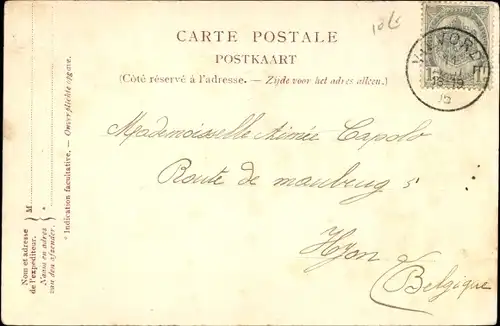 CARTE POSTALE
POSTKAART
(Côté réservé à l'adresse. — Zijde voor het adres alleen.)
Mademoiselle Aimée Capolo
Route de maubeug 5
Hyon
(Belgique
* Indication facultative. — Onverplichte opgave.
M *
Nom et adresse de l'expéditeur.
Naam en adres van den afzender.
VILVORDE